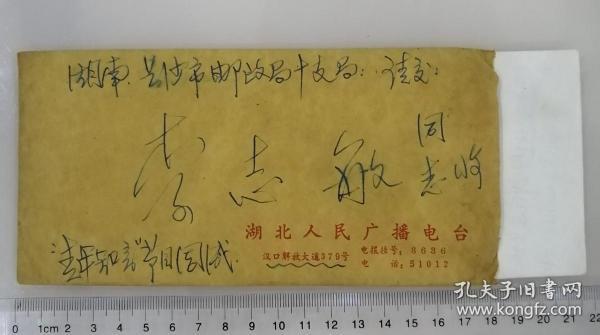 湖南.长沙市邮政局十支局:请交:
李志敏同志收
湖北人民广播电台
汉口解放大道379号
电报挂号:8686
电话:51012
"青年知音"节目
0 1cm 2 3 4 5 6 7 8 9 10 11 12 13 14 15 16 17 18 19 20 21 22
孔夫子旧书网
www.kongfz.com